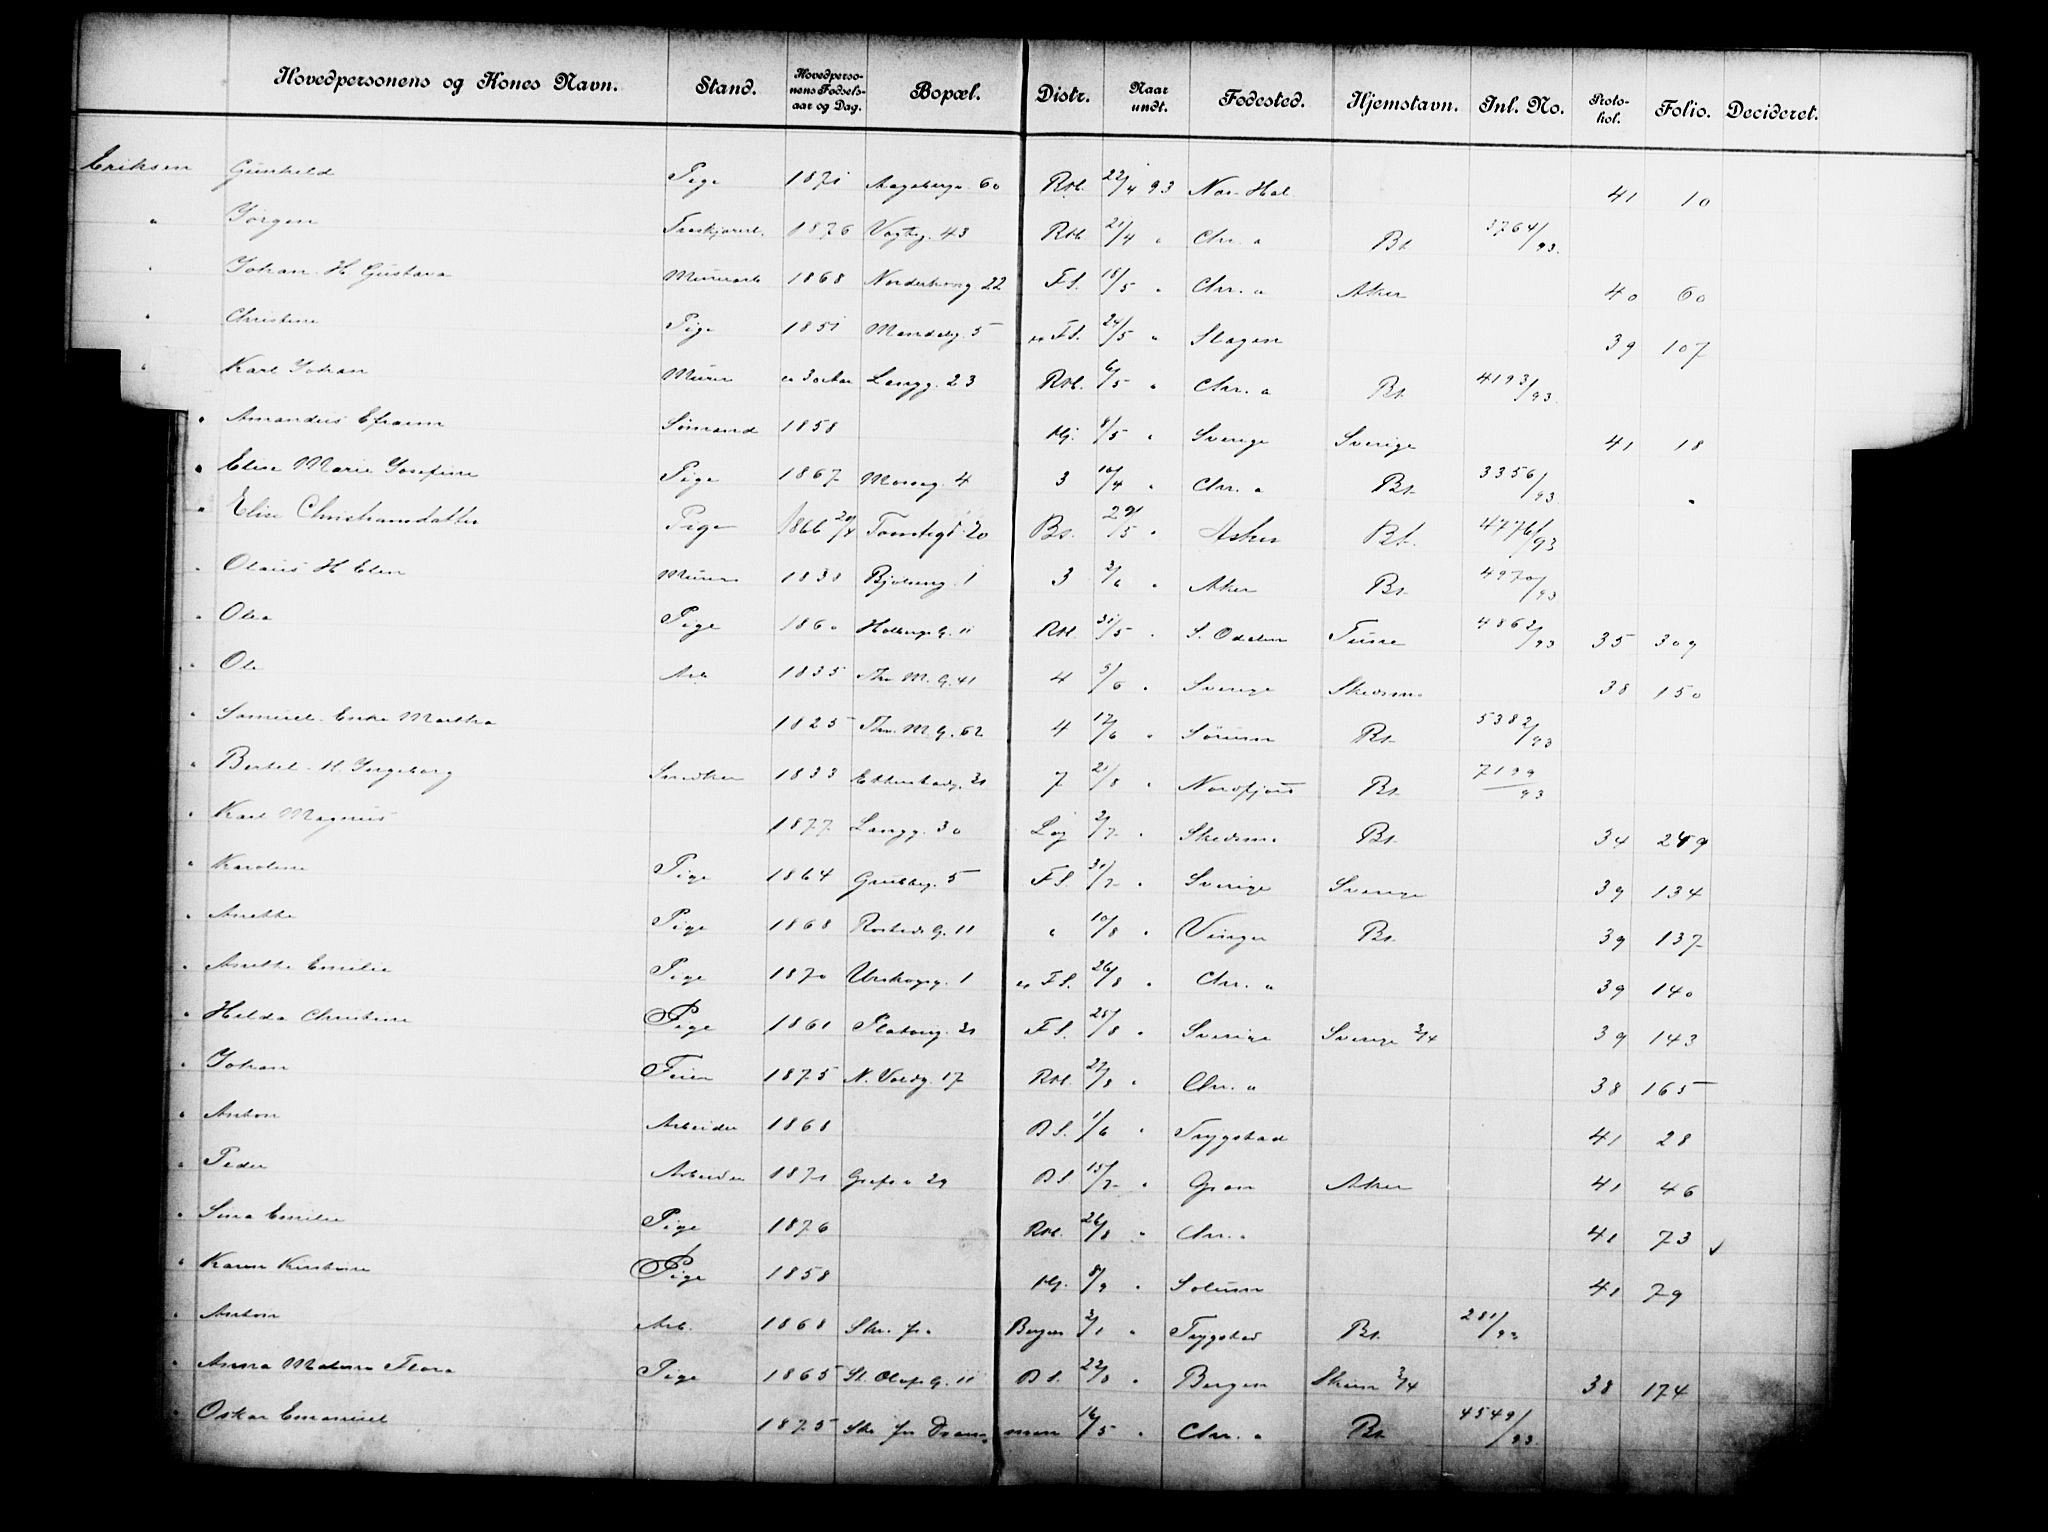 Hovedpersonens og Kones Navn. Stand. Hovedpersonens Fødselsaar og Dag. Bopæl. Distr. Naar undt. Fødested. Hjemstavn. Inl. No. Protokol. Folio. Decideret.
Eriksen Gunhild Pige 1871 60 Rst. 22/4 93 41 10
" Jørgen 1876 Vogtsg. 43 Rst. 21/4 " Chr. a Bt. 3764/93
" Johan H Gustava 1868 22 F.S. 18/5 " Chr. a Aker 40 60
" Christine Pige 1851 Mandalsg. 5 F.S. 24/5 " Slagen 39 107
" Karl Johan Murer Langg. 23 Rst. 6/5 " Chr. a Bt. 4193/93
" Amandus Efraim Sømand 1858 8/5 " Sverige Sverige 41 18
" Elise Marie Josefine Pige 1867 Mosseg. 4 3 10/4 " Chr. a Bt. 3356/93
" Elise Christiansdatter Pige 1866 Tomtegd. 20 Bs. 29/5 " Asker Bt. 4776/93
" Olaus H Elen Murer 1838 Bjølseng. 1 3 2/6 " Aker Bt. 4970/93
" Olea Pige 1860 Holbergs G. 11 Rst. 31/5 " S. Odalen Tune 4862/93 35 309
" Ole Arb 1835 Thv. M. G. 41 4 5/6 " Sverige Skedsmo 38 150
" Samuel Enke Martha 1825 Thv. M. G. 62 4 17/6 " Sørum Bt. 5382/93
" Bertel H. Ingeborg Snedker 1833 Etterstadg. 31 7 21/8 " Nordfjord Bt. 7199/93
" Karl Magnus 1877 Langg. 30 Løj 2/7 " Skedsmo Bt. 34 249
" Karoline Pige 1864 Grubbeg. 5 F.S. 31/7 " Sverige Sverige 39 134
" Anette Pige 1868 Rosteds G. 11 " 10/8 " Vinger Bt. 39 137
" Anette Emilie Pige 1870 Urskogsg. 1 F.S. 26/8 " Chr. a 39 140
" Hilda Christine Pige 1861 Platousg. 31 F.S. 25/8 " Sverige Sverige 2/4 39 143
" Johan Feier 1875 N. Voldg. 17 Rst. 27/8 " Chr. a 38 165
" Anton Arbeider 1868 B.S. 1/6 " Trygstad 41 28
" Peder Arbeider 1871 29 B.S 15/7 " Gran Aker 41 46
" Sina Emilie Pige 1876 Rst. 26/8 " Chr. a 41 73
" Karen Kirstine Pige 1858 8/9 " Solum 41 79
" Anton Arb. 1868 Skr. fra Bergen 2/1 " Trygstad Bt. 281/93
" Anna Matena Flora Pige 1865 St. Olafs G. 11 B.S. 22/8 " Bergen Skien 2/4 38 174
" Oskar Emanuel 1875 Skr. fra Drammen 16/5 " Chr. a Bt 4549/93